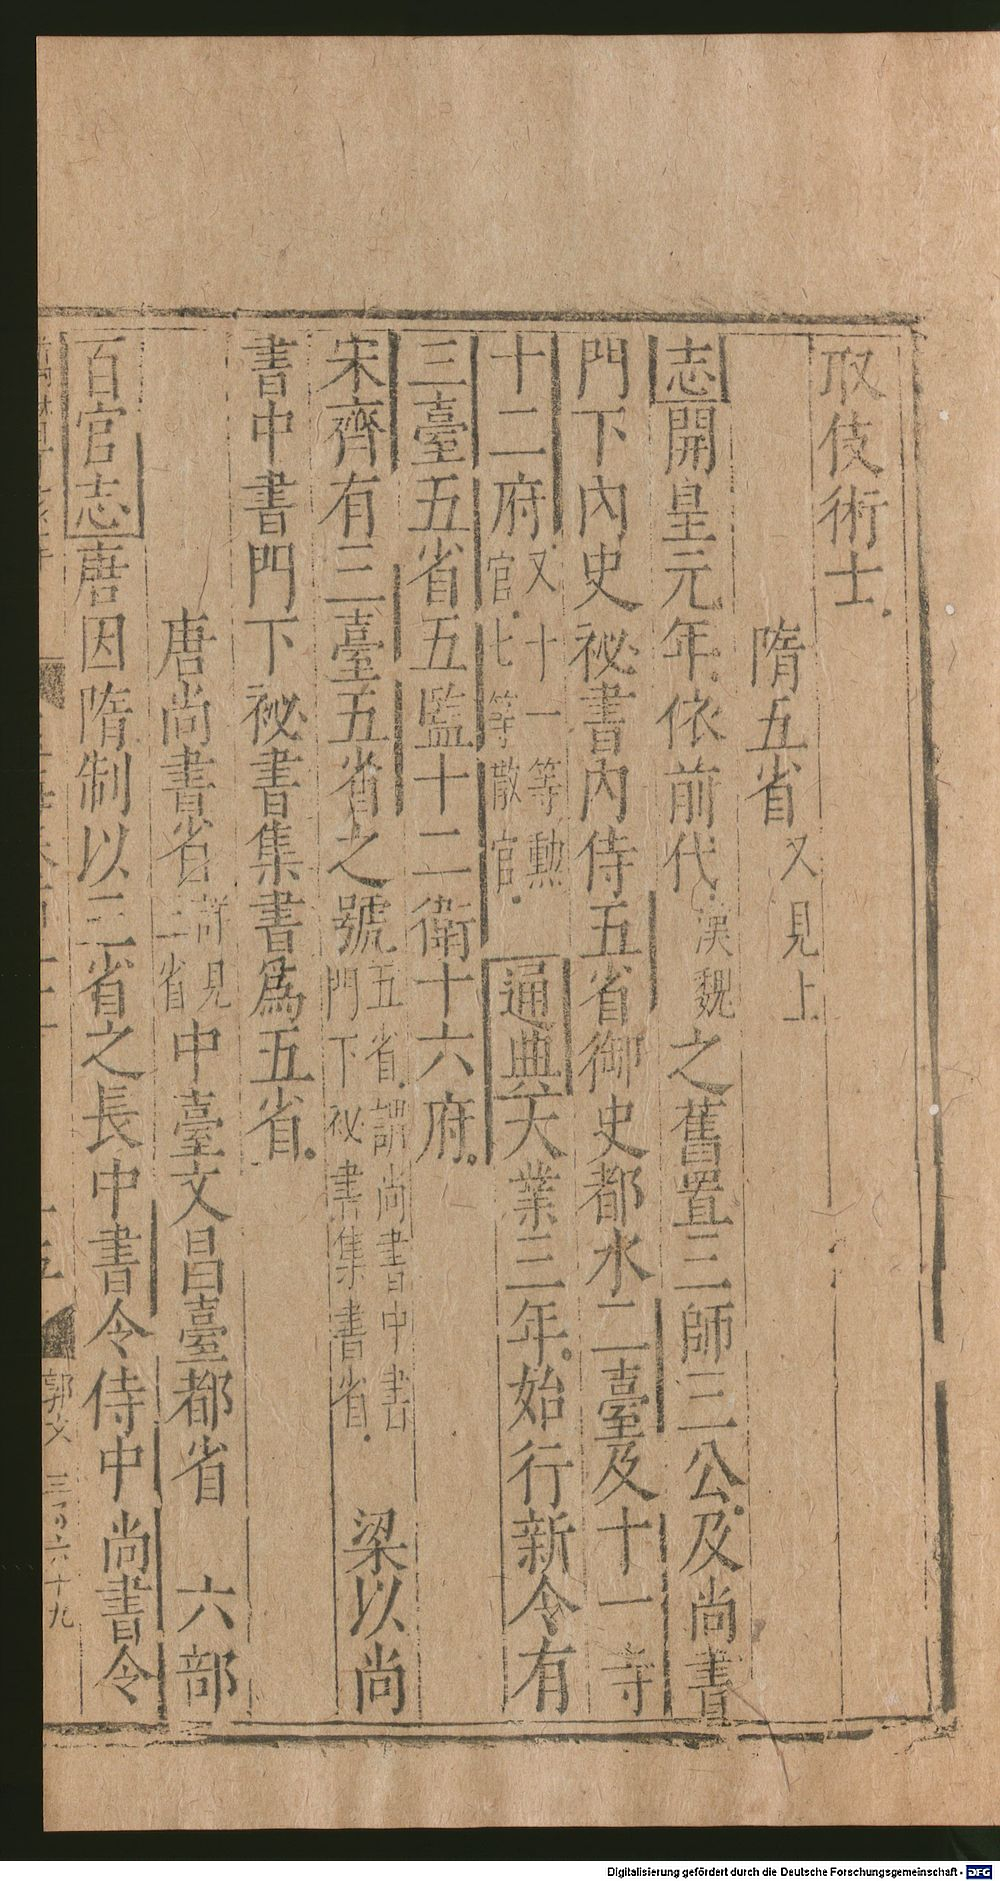 取伎術士。
隋五省又見上
志開皇元年。依前代。漢魏之舊置三師三公。及尚書
門下內史祕書內侍五省御史都水二臺及十一寺
十二府又十一等勲官。七等散官。通典大業三年。始行新令有
三臺五省五監十二衛十六府。
宋齊有三臺五省之號五省。謂尚書中書門下祕書集書省。梁以尚
書中書門下祕書集書爲五省。
唐尚書省詳見二省中臺文昌臺都省 六部
百官志唐因隋制以三省之長中書令侍中尚書令
郭文 三百六十九
Digitalisierung gefördert durch die Deutsche Forschungsgemeinschaft - DFG